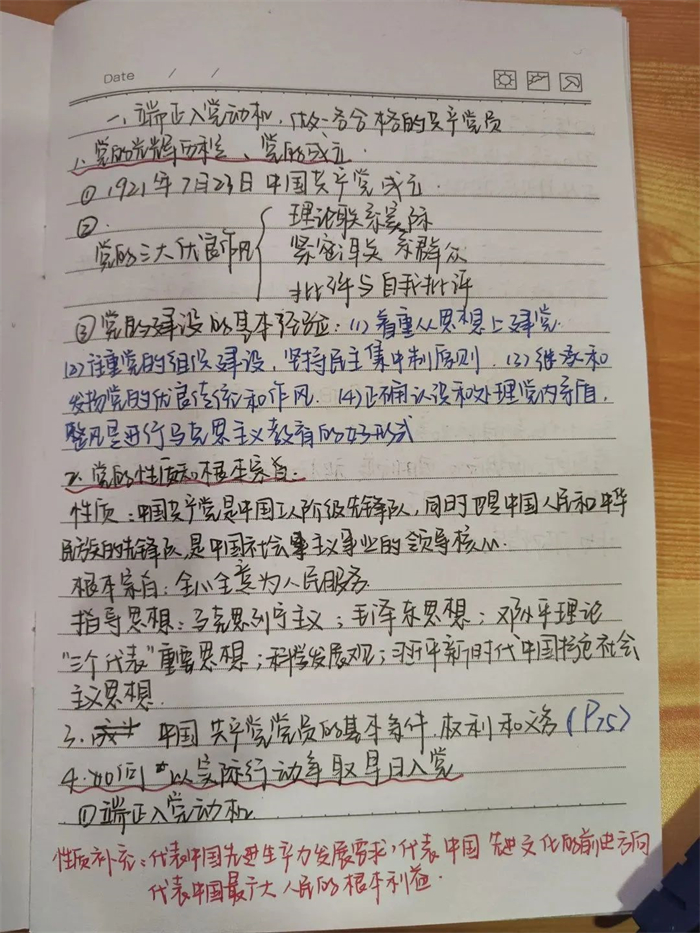 Date / /
一、端正入党动机,做一名合格的共产党员
1、党的光辉历程、党的成立.
① 1921年7月23日中国共产党成立.
②.
党的三大优良作风 { 理论联系实际
紧密联系群众
批评与自我批评
③ 党的建设的基本经验:(1)着重从思想上建党.
(2)注重党的组织建设,坚持民主集中制原则.(3)继承和
发扬党的优良传统和作风.(4)正确认识和处理党内矛盾,
整风是进行马克思主义教育的好形式
2、党的性质和根本宗旨.
性质:中国共产党是中国工人阶级先锋队,同时也是中国人民和中华
民族的先锋队,是中国社会主义事业的领导核心.
根本宗旨:全心全意为人民服务
指导思想:马克思列宁主义;毛泽东思想;邓小平理论
“三个代表”重要思想;科学发展观;习近平新时代中国特色社会
主义思想.
3. 中国共产党党员的基本条件,权利和义务(P75)
4.如何以实际行动争取早日入党
①端正入党动机
性质补充:代表中国先进生产力发展要求,代表中国先进文化的前进方向
代表中国最广大人民的根本利益.